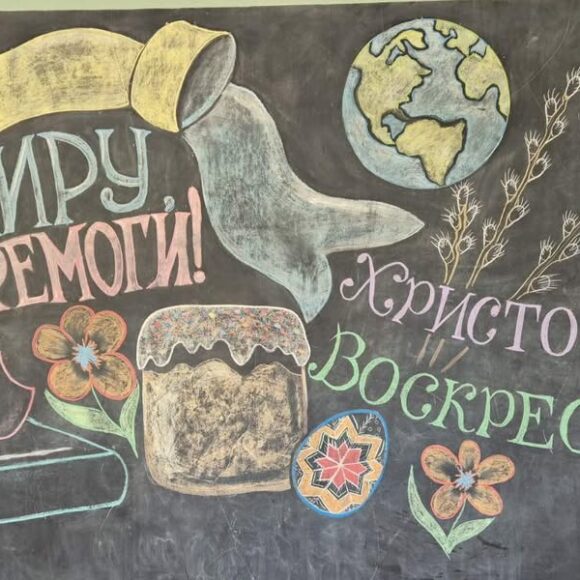 ИРУ,
РЕМОГИ!
ХРИСТО
ВОСКРЕС